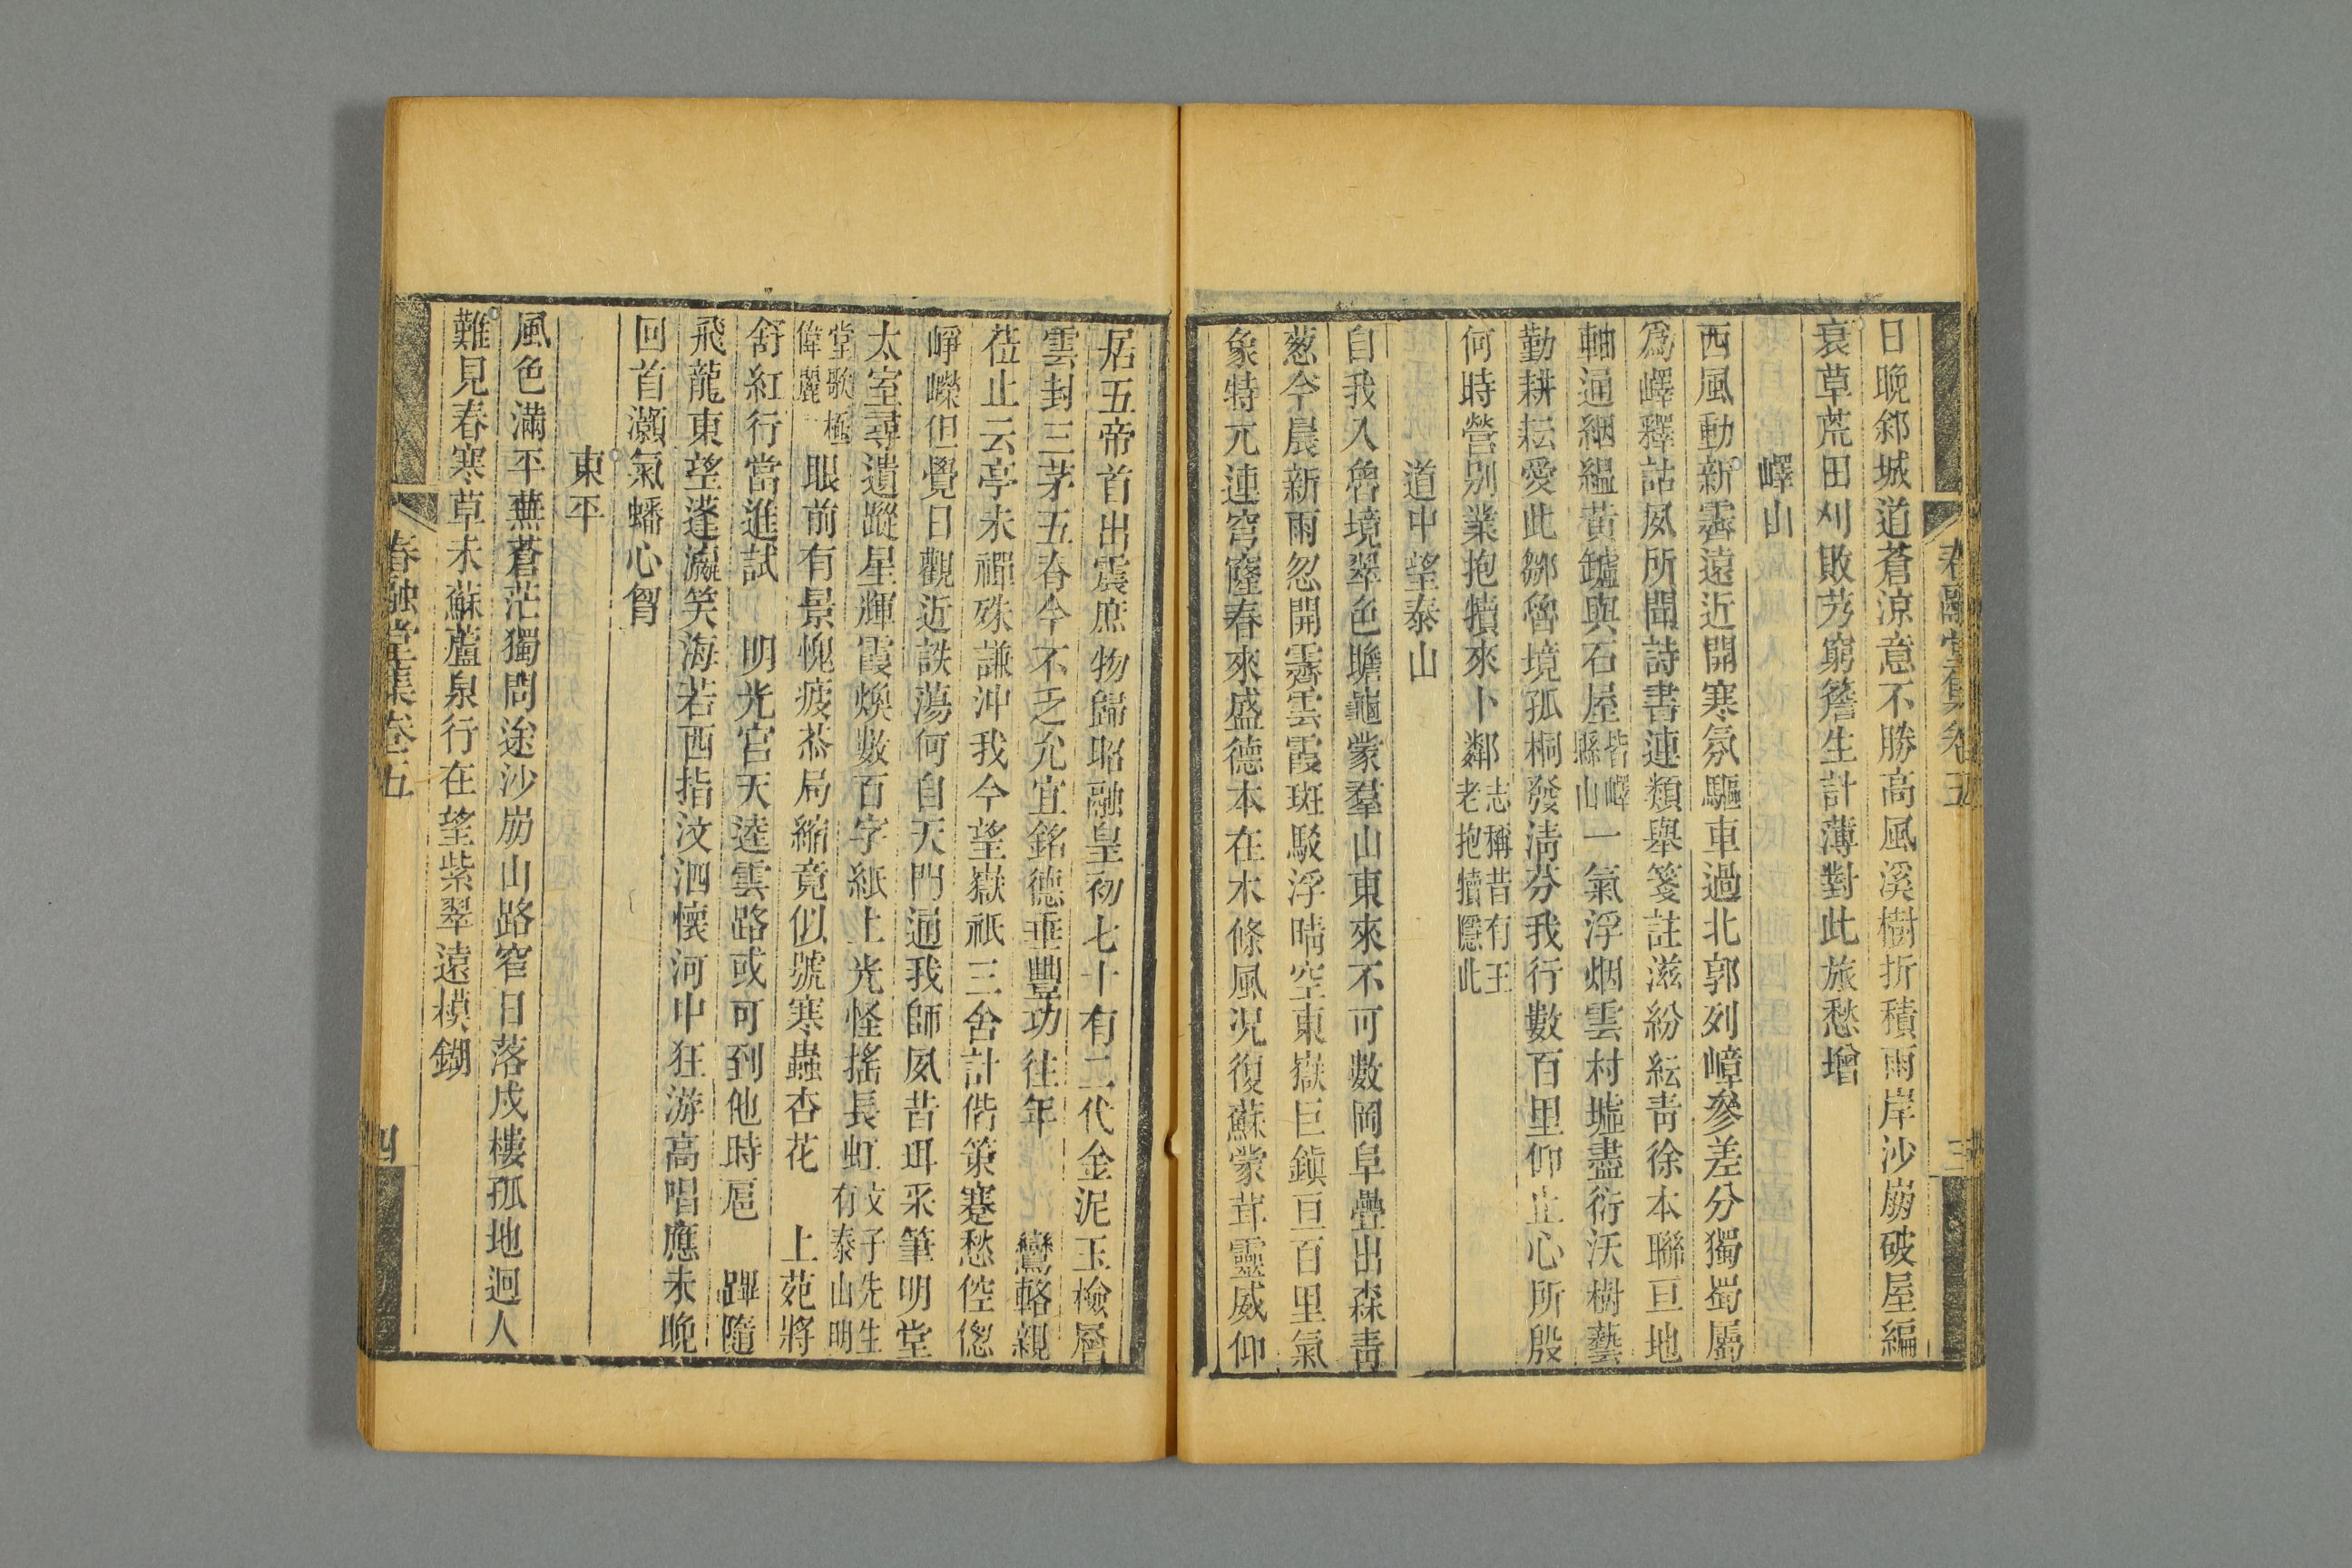 春融堂集卷五
三
日晚郯城道蒼涼意不勝高風溪樹折積雨岸沙崩破屋編
衰草荒田刈敗艿窮簷生計薄對此旅愁增
嶧山
西風動新霽遠近開寒氛驅車過北郭列嶂參差分獨蜀屬
爲嶧釋詁夙所聞詩書連類舉箋註滋紛紜靑徐本聯亘地
軸通絪縕黃鑪與石屋皆嶧縣山一氣浮烟雲村墟盡衍沃樹藝
勤耕耘愛此鄒魯境孤桐發淸芬我行數百里仰止心所殷
何時營別業抱犢來卜鄰志稱昔有王老抱犢隱此
道中望泰山
自我入魯境翠色瞻龜蒙羣山東來不可數岡阜疊出森靑
葱今晨新雨忽開霽雲霞斑駁浮晴空東嶽巨鎭亘百里氣
象特兀連穹窿春來盛德本在木條風況復蘇蒙茸靈威仰
居五帝首出震庶物歸昭融皇初七十有二代金泥玉檢層
雲封三茅五春今不乏允宜銘德垂豐功往年　鸞輅親
莅止云亭未禪殊謙沖我今望嶽祇三舍計偕策蹇愁倥傯
崢嶸但覺日觀近詄蕩何自天門通我師夙昔珥采筆明堂
太室尋遺蹤星輝霞煥數百字紙上光怪搖長虹文子先生有泰山明
堂歌極偉麗眼前有景愧疲苶局縮竟似號寒蟲杏花　上苑將
舒紅行當進試　明光宮天逵雲路或可到他時扈　蹕隨
飛龍東望蓬瀛笑海若西指汶泗懷河中狂游高唱應未晚
回首灝氣蟠心胷
東平
風色滿平蕪蒼茫獨問途沙崩山路窄日落戍樓孤地迥人
難見春寒草未蘇蘆泉行在望紫翠遠模餬
春融堂集卷五
四